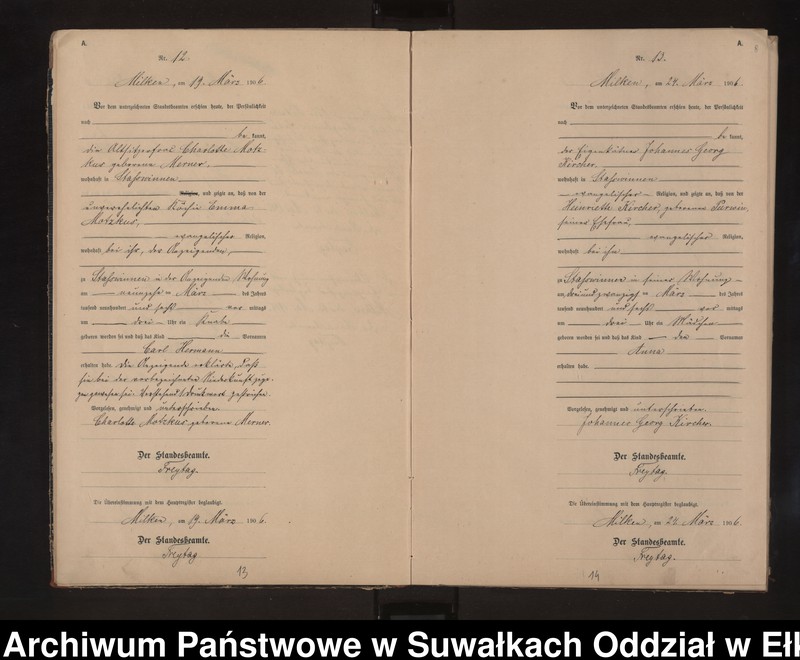 A.
Nr. 12.
Milken, am 19. März 1906
Vor dem unterzeichneten Standesbeamten erschien heute, der Persönlichkeit
nach
be kannt,
die Altsitzerfrau Charlotte Motz-
kus geborene Merner,
wohnhaft in Staßwinnen
Religion, und zeigte an, daß von der
unverehelichten Köchin Emma
Motzkus,
evangelischer Religion,
wohnhaft bei ihr, der Anzeigenden,
zu Staßwinnen in der Anzeigenden Wohnung
am neunzehn März des Jahres
tausend neunhundert und sechs vor mittags
um drei Uhr ein Knabe
geboren worden sei und daß das Kind die Vornamen
Carl Hermann
erhalten habe. Die Anzeigende erklärte, daß
sie bei der vorbezeichneten Niederkunft zuge-
gen gewesen sei. Vorstehend 1 Druckwort gestrichen.
Vorgelesen, genehmigt und unterschrieben
Charlotte Motzkus geborene Merner.
Der Standesbeamte.
Freytag.
Die Übereinstimmung mit dem Hauptregister beglaubigt.
Milken, am 19. März 1906.
Der Standesbeamte.
Freytag
13
A.
Nr. 13.
Milken, am 24. März 1906
Vor dem unterzeichneten Standesbeamten erschien heute, der Persönlichkeit
nach
be kannt,
der Eigenkätner Johannes Georg
Kircher,
wohnhaft in Staßwinnen
evangelischer Religion, und zeigte an, daß von der
Henriette Kircher, geborenen Purwin,
seiner Ehefrau,
evangelischer Religion,
wohnhaft bei ihm
zu Staßwinnen in seiner Wohnung
am dreiundzwanzigsten März des Jahres
tausend neunhundert und sechs vor mittags
um drei Uhr ein Mädchen
geboren worden sei und daß das Kind den Vornamen
Anna
erhalten habe.
Vorgelesen, genehmigt und unterschrieben
Johannes Georg Kircher.
Der Standesbeamte.
Freytag.
Die Übereinstimmung mit dem Hauptregister beglaubigt.
Milken, am 24. März 1906.
Der Standesbeamte.
Freytag.
14
Archiwum Państwowe w Suwałkach Oddział w Ełk